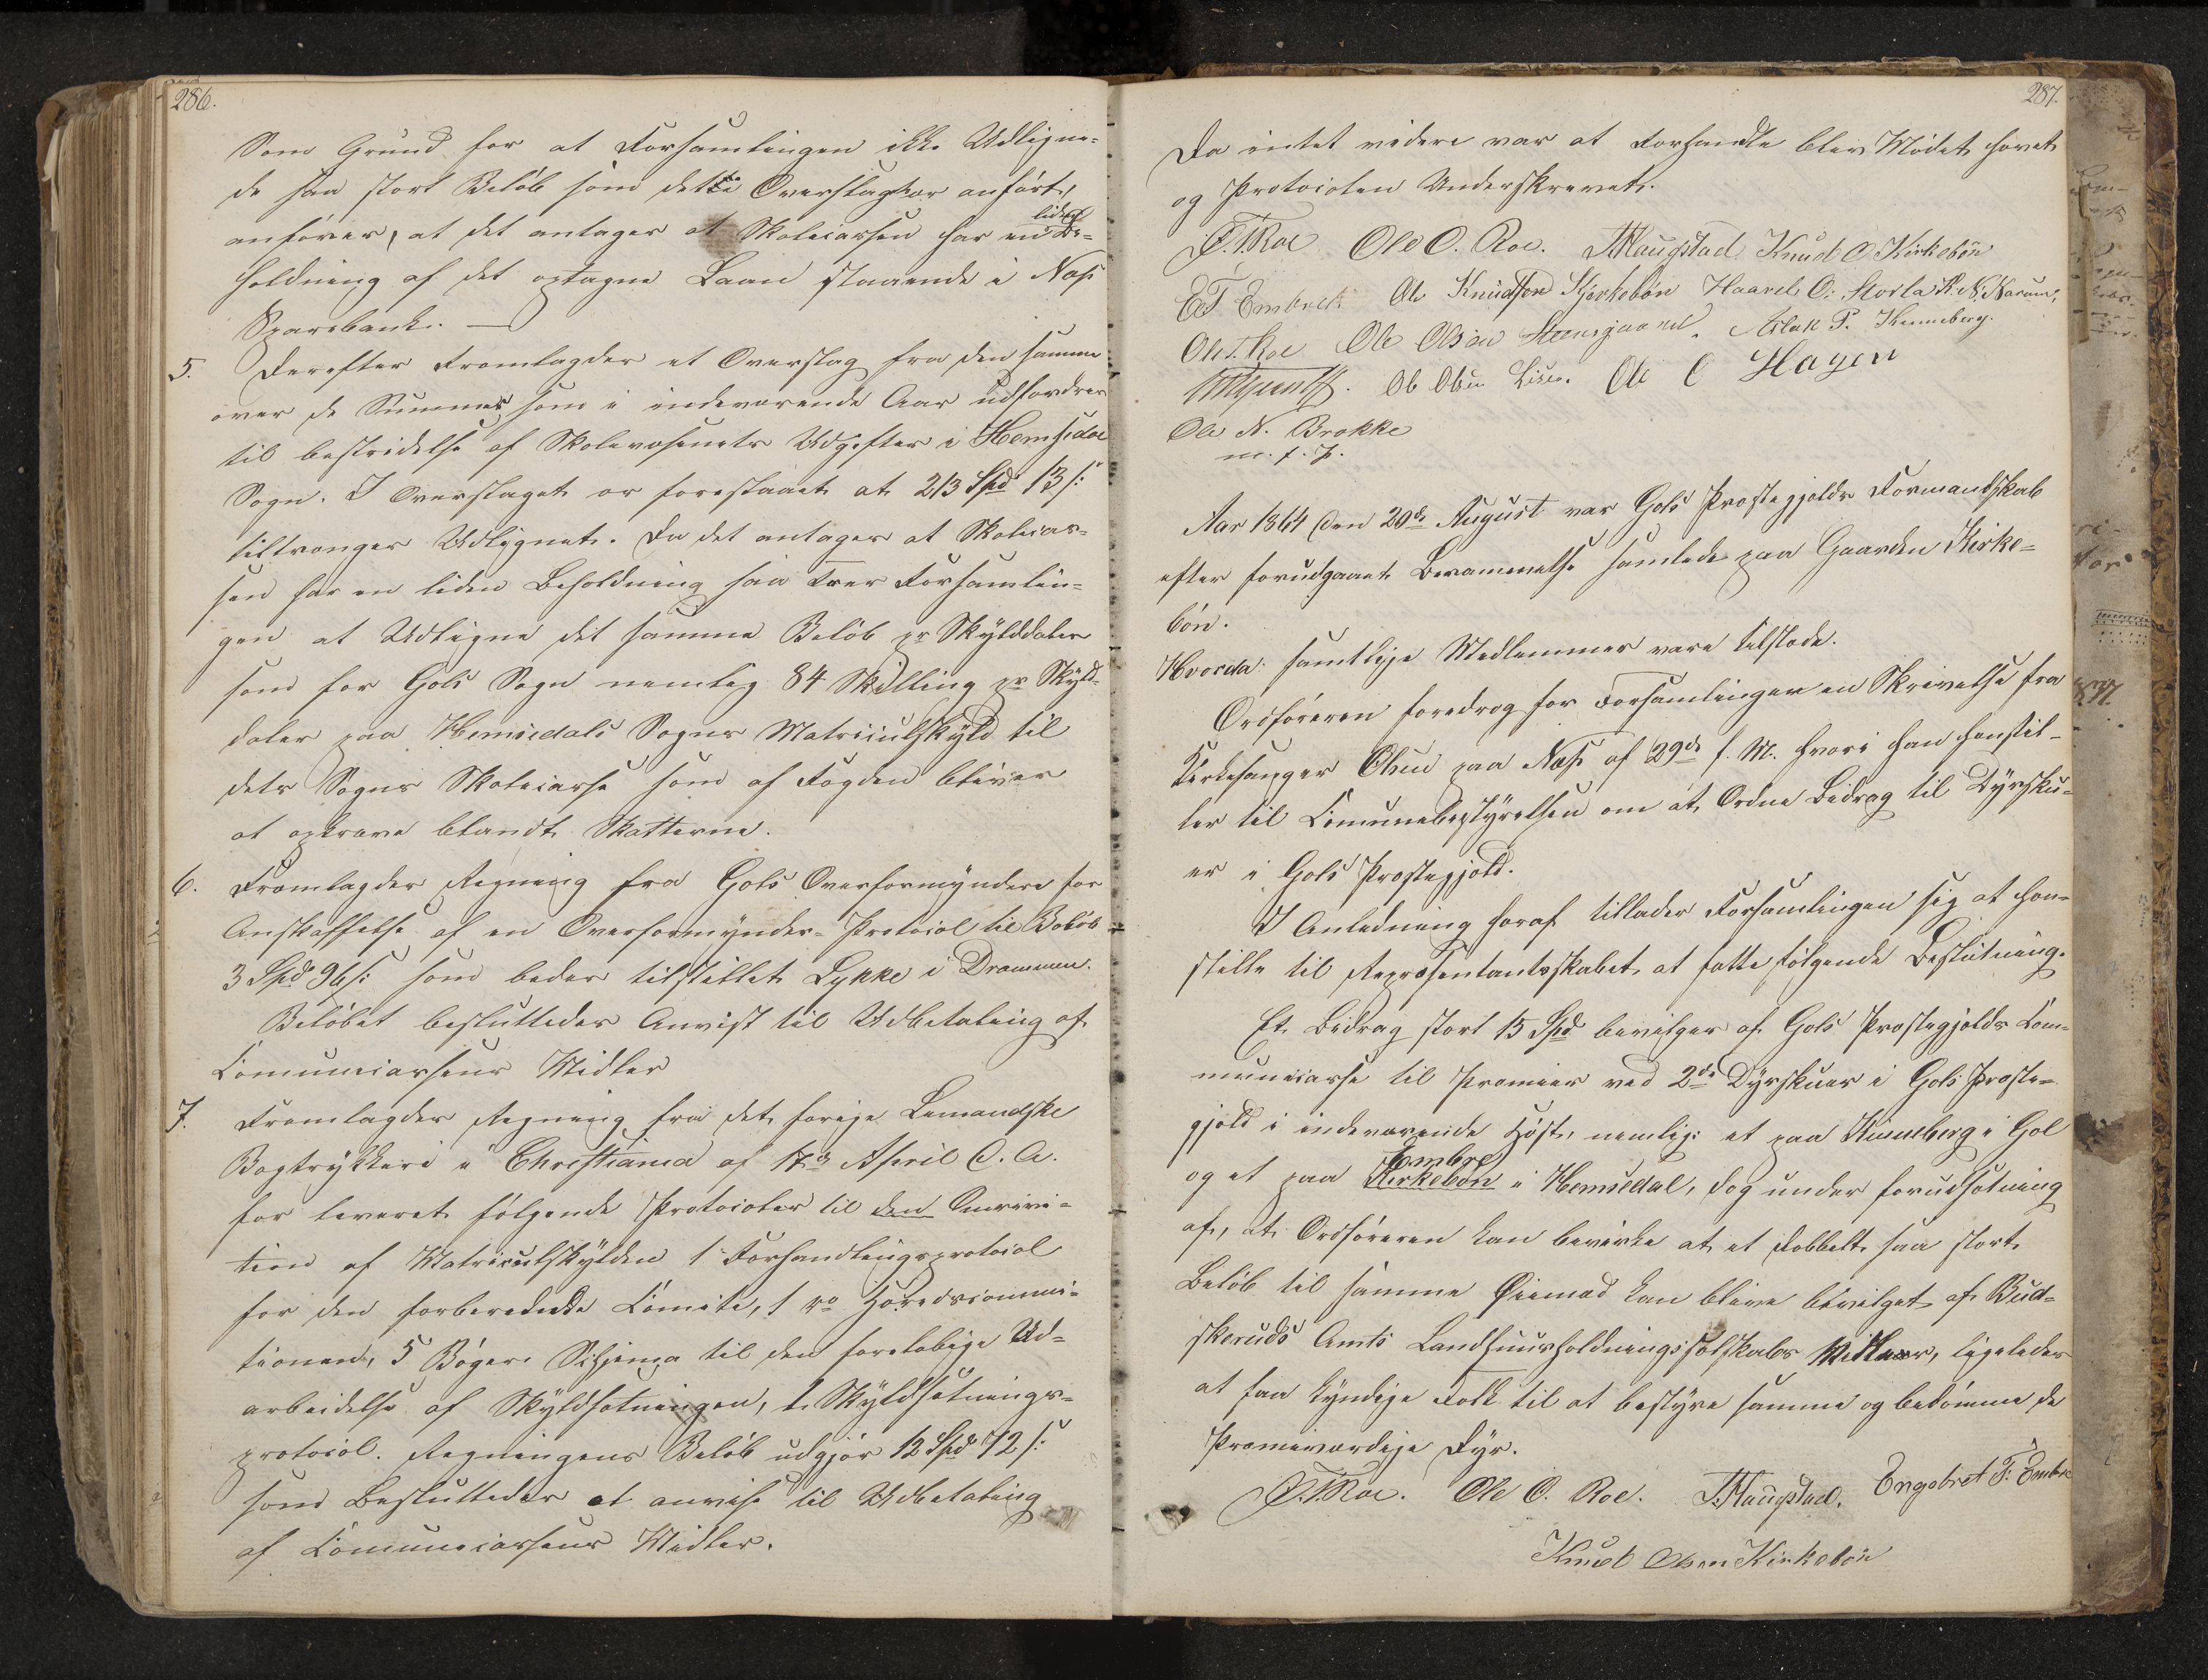 286.
Som Grund for at Forsamlingen ikke Udligne-
de saa stort Beløb som dette Overslag har anført,
anføres, at det antages at Skolecassen har en liden Be-
holdning af det optagne Laan staaende i Næs
Sparebank.
5. Derefter Fremlagdes et Overslag fra den samme
over de Summer som i indeværende Aar udfordres
til bestridelse af Skolevæsenets Udgifter i Hemsedal
Sogn. I Overslaget er forestaaet at 213 Spd 13 s:
tiltrænges Udlignet. Da det antages at Skolecas-
sen har en liden Beholdning saa troer Forsamlin-
gen at Udligne det samme Beløb pr Skylddaler
som for Gols Sogn nemlig 84 Skilling pr Skyld-
daler paa Hemsedals Sogns Matriculskyld til
dets Sogns Skolecasse som af Fogden bliver
at opkræve blandt Skatterne.
6. Fremlagdes Regning fra Gols Overformyndere for
Anskaffelse af en Overformynder-Protocol til Beløb
3 Spd 96 s: som bedes tilstillet Lykke i Drammen.
Beløbet besluttedes Anvist til Udbetaling af
Communecassens Midler
7. Fremlagdes Regning fra det forige Lemandske
Bogtrykkeri i Christiania af 17de April D. A.
for leveret følgende Protocoler til den
tion af Matriculskylden 1 Forhandlingsprotocol
for den forberedende Comite, 1 do Herredscommi-
tionen, 5 Bøger Schjema til den foreløbige Ud-
arbeidelse af Skyldsætningen, 1 Skyldsætnings-
protocol. Regningens Beløb udgjør 12 Spd 72 s:
som Besluttedes at anvise til Udbetaling
af Communecassens Midler.
287.
Da intet videre var at Forhandle blev Mødet hævet
og Protocolen Underskrevet.
T. T. Roe Ole O. Roe. T. Haugstad Knud O Kirkebøn
E T Embret Ole Knudsen Kjerkebøn Haavel O: Storla K. N. Narum,
Ole T. Roe Ole Olsen Steensgaard. Aslak P. Kinneberg.
Ole Olsen Lien. Ole O Hagen
Ole N. Brokke
m. f. P.
Aar 1864 den 20de August var Gols Præstegjelds Formandskab
efter forudgaaet Berammelse samlede paa Gaarden Kirke-
bøn.
Hvorda samtlige Medlemmer vare tilstede.
Ordføreren foredrog for Forsamlingen en Skrivelse fra
Kirkesanger Olsen paa Næs af 29de f. M. hvori han henstil-
ler til Communebestyrelsen om at Ordne Bidrag til Dyrsku-
er i Gols Præstegjeld.
I Anledning heraf tillader Forsamlingen sig at hen-
stille til Repræsentantskabet at fatte følgende Beslutning.
Et Bidrag stort 15 Spd bevilges af Gols Præstegjelds Com-
munecasse til Præmier ved 2de Dyrskuer i Gols Præste-
gjeld i indeværende Høst, nemlig: et paa Kinneberg i Gol
og et paa Kirkebøn Embre i Hemsedal, dog under forudsætning
af, at Ordføreren kan bevirke at et dobbelt saa stort
Beløb til samme Øiemed kan blive bevilget af Bud-
skeruds Amts Landhuusholdningsselskabs Midler, ligeledes
at faa kyndige Folk til at bestyre samme og bedømme de
Præmieværdige Dyr.
T. T. Roe. Ole O. Roe. T. Haugstad. Engebret T: Embre
Knud Olsen Kirkebøn